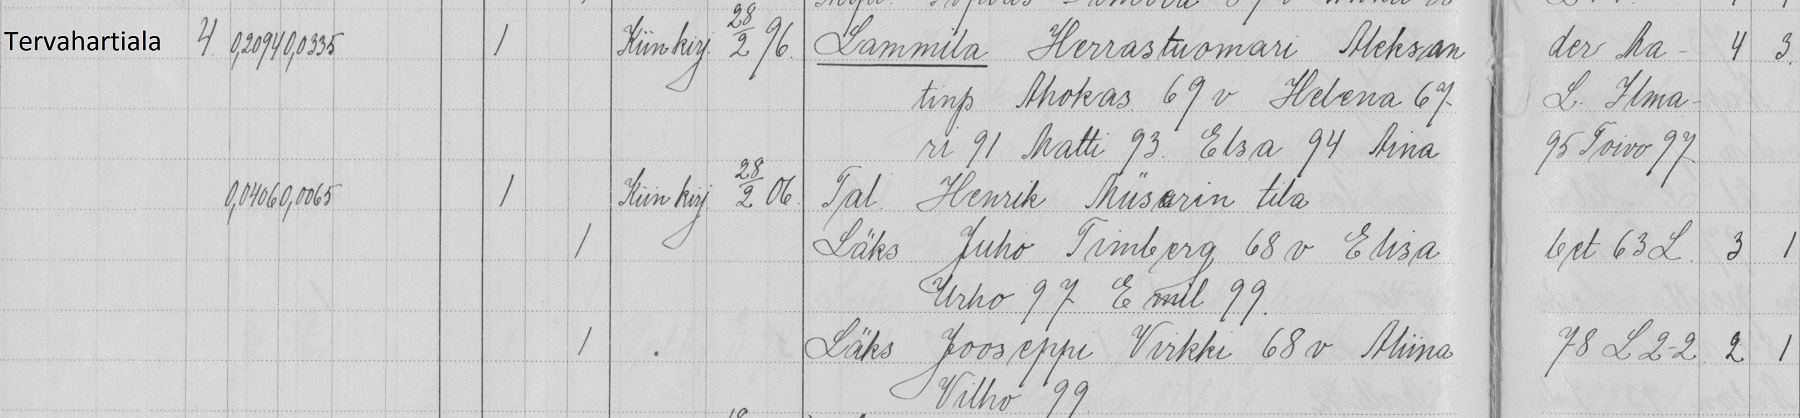 Tervahartiala 4 0,2094 0,0335 1 Kiinkirj 28/2 96. Lammila Herrastuomari Aleksan der Ma- 4 3
tinp Ahokas 69 v Helena 67 L. Ilma-
ri 91 Matti 93. Elsa 94 Aina 95 Toivo 97
0,0406 0,0065 1 Kiinkirj 28/2 06. Tal. Henrik Müsarin tila
1 Läks Juho Timberg 68 v Elisa bet 63 L. 3 1
Urho 97 Emil 99.
1 Läks Jooseppi Virkki 68 v Aliina 78 L 2-2 2 1
Vilho 99